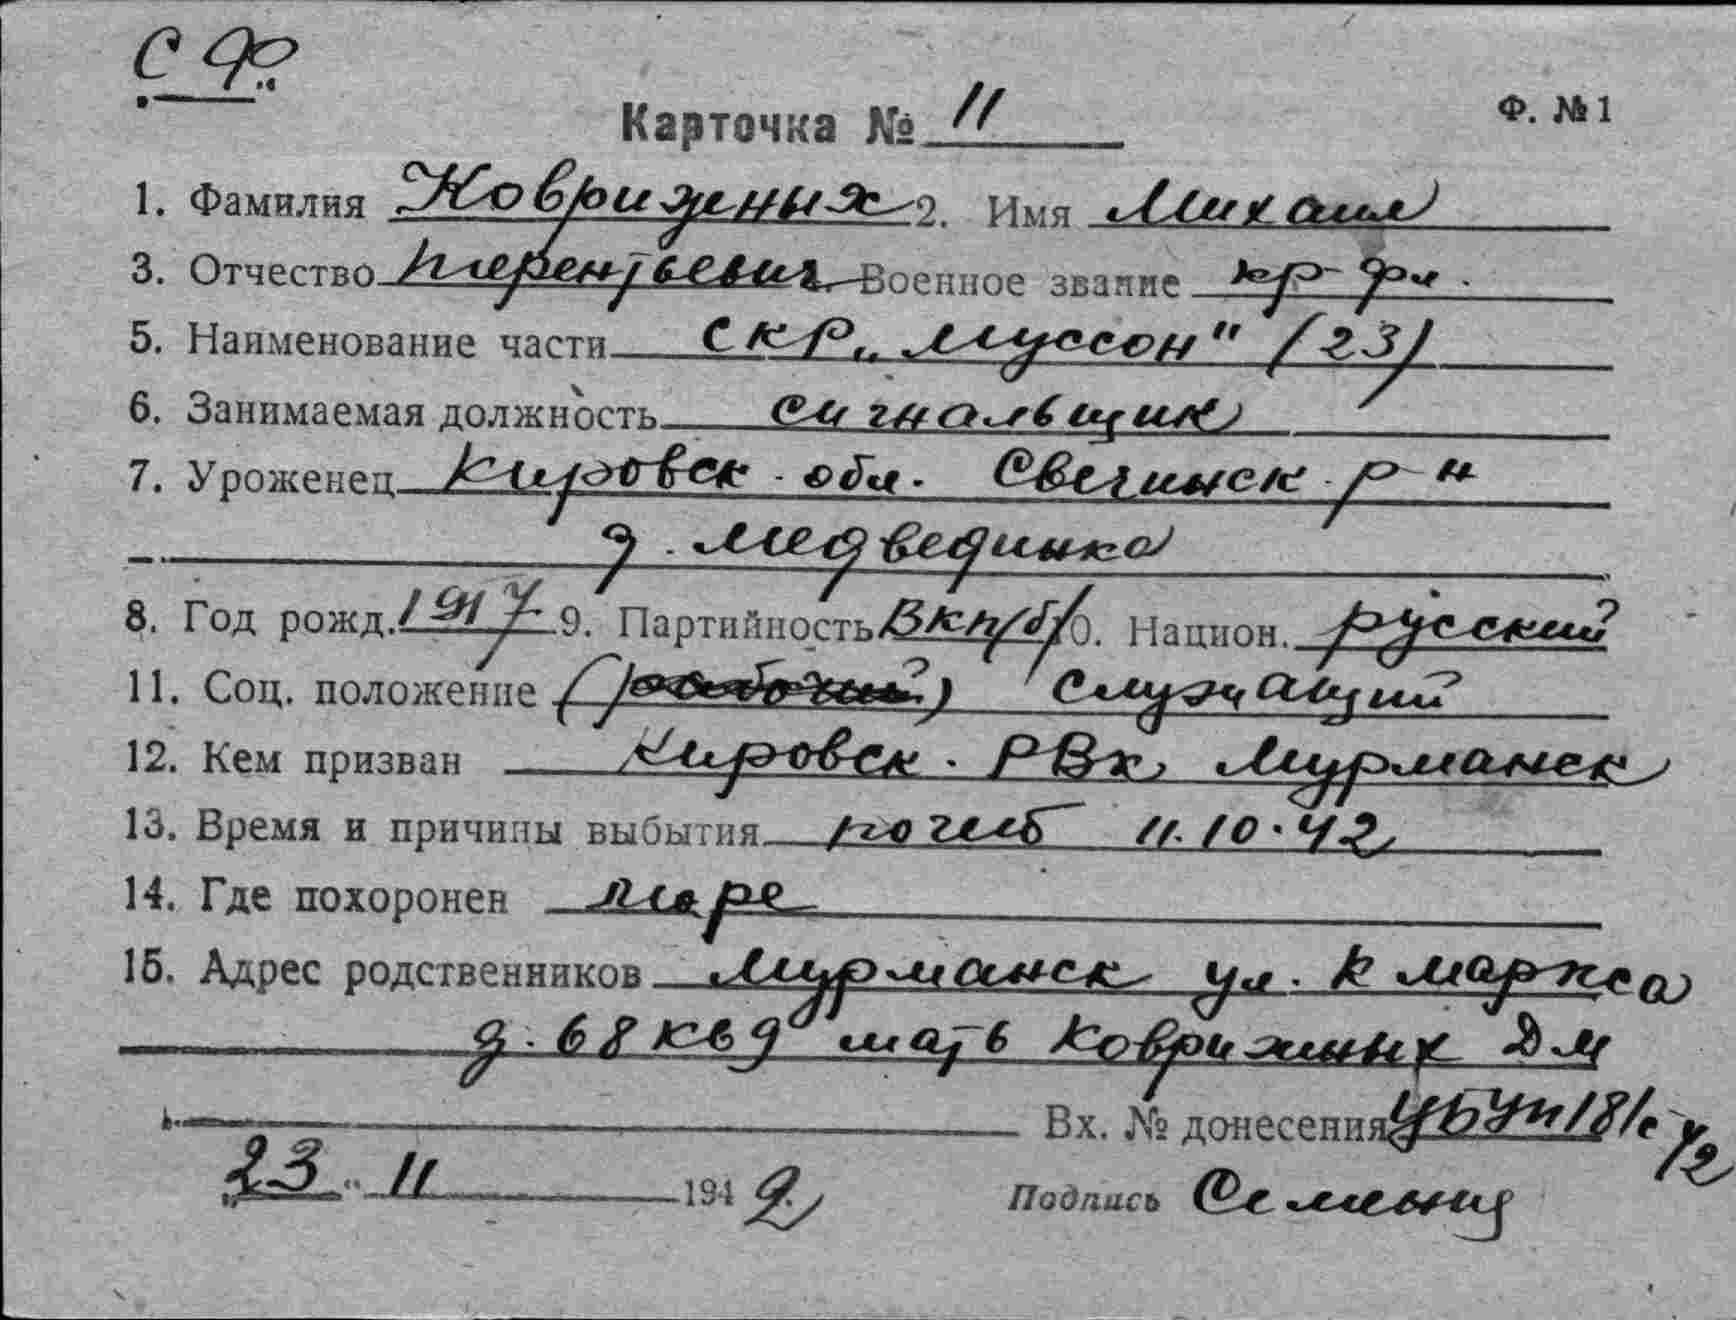 С Ф.
Карточка № 11
Ф. № 1
1. Фамилия Коврижных 2. Имя Михаил
3. Отчество Терентьевич Военное звание кр-фл.
5. Наименование части СКР „Муссон" (23)
6. Занимаемая должность сигнальщик
7. Уроженец Кировск. обл. Свечинск. р-н
д. Медвединка
8. Год рожд. 1917 9. Партийность ВКП(б) 10. Национ. русский
11. Соц. положение (рабочий) служащий
12. Кем призван Кировск. РВК Мурманск
13. Время и причины выбытия погиб 11.10.42
14. Где похоронен море
15. Адрес родственников Мурманск ул. К Маркса
д. 68 кв 9 мать Коврижных Д М
Вх. № донесения
„23" 11 1942 Подпись